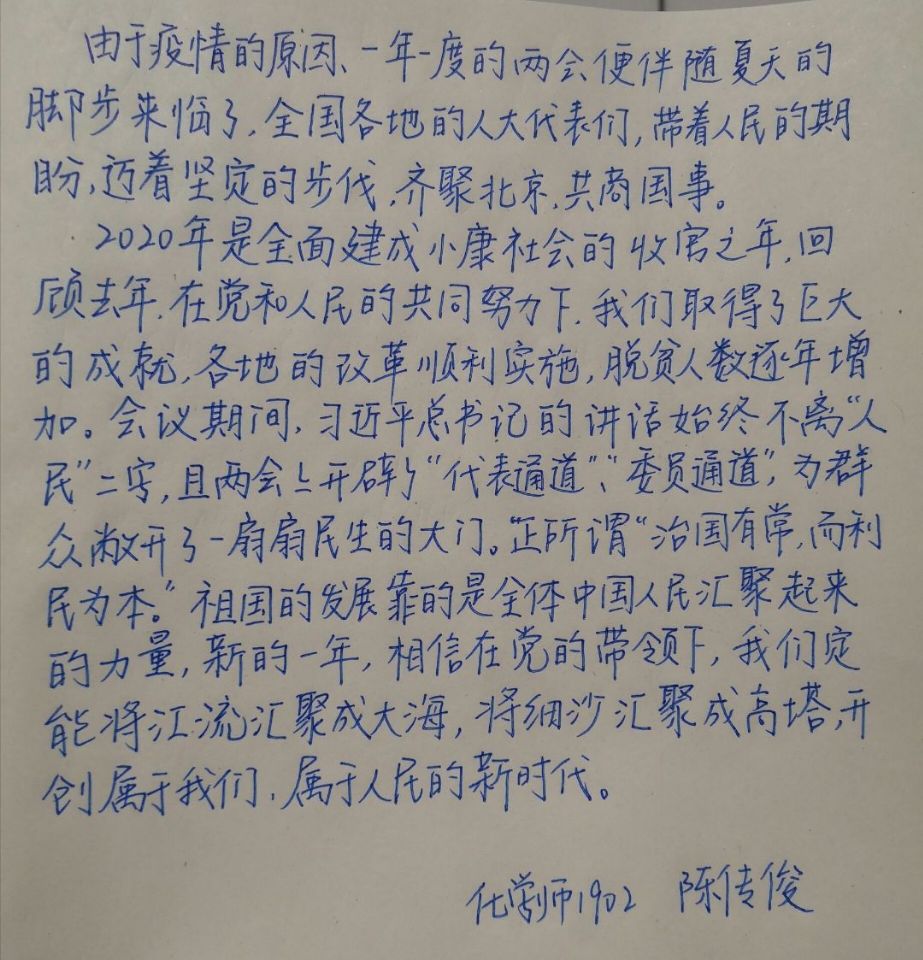 由于疫情的原因、一年一度的两会便伴随夏天的
脚步来临了，全国各地的人大代表们，带着人民的期
盼，迈着坚定的步伐，齐聚北京，共商国事。
2020年是全面建成小康社会的收官之年，回
顾去年，在党和人民的共同努力下，我们取得了巨大
的成就，各地的改革顺利实施，脱贫人数逐年增
加。会议期间，习近平总书记的讲话始终不离“人
民”二字，且两会上开辟了“代表通道”、“委员通道”，为群
众敞开了一扇扇民生的大门。“正所谓“治国有常，而利
民为本。”祖国的发展靠的是全体中国人民汇聚起来
的力量，新的一年，相信在党的带领下，我们定
能将江流汇聚成大海，将细沙汇聚成高塔，开
创属于我们，属于人民的新时代。
化学师1902 陈传俊